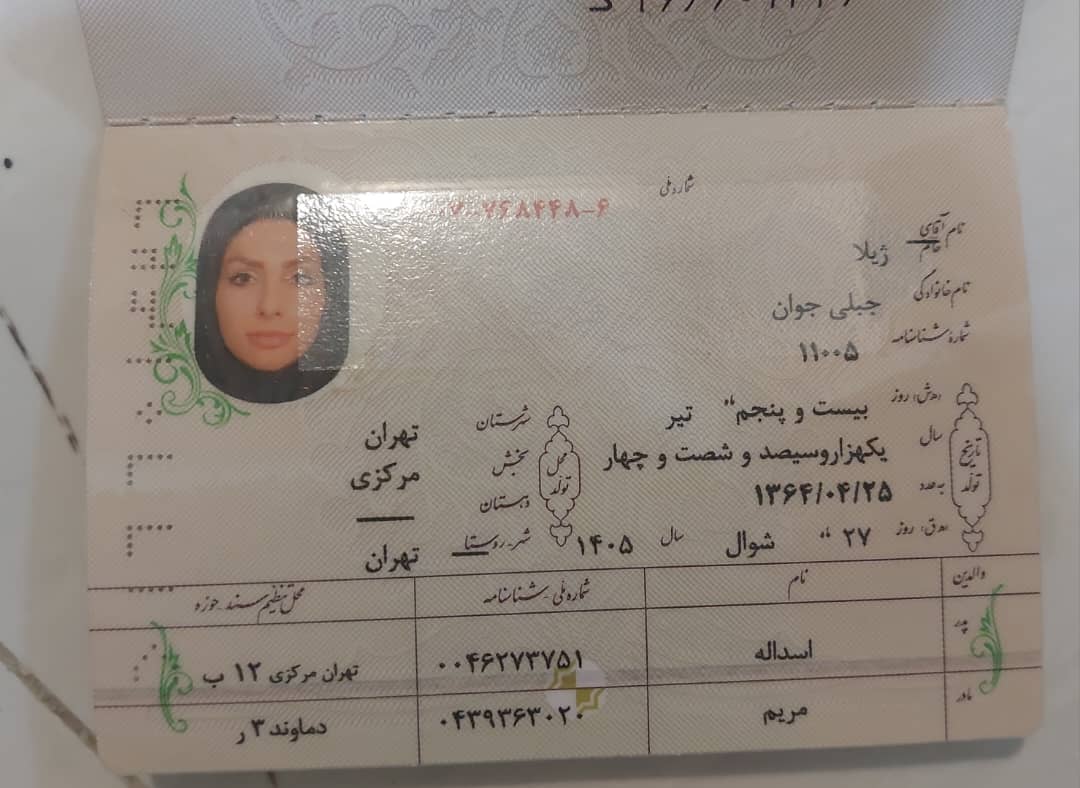 شماره ملی
نام آقای خانم ژیلا
نام خانوادگی جبلی جوان
شماره شناسنامه ۱۱۰۰۵
تاریخ تولد
(ه‍.ش) روز بیست و پنجم " تیر
سال یکهزاروسیصد و شصت و چهار
به عدد ۱۳۶۴/۰۴/۲۵
(ه‍.ق) روز ۲۷ " شوال سال ۱۴۰۵
محل تولد
شهرستان تهران
بخش مرکزی
دهستان —
شهر-روستا تهران
والدین نام شماره ملی-شناسنامه محل تنظیم سند-حوزه
پدر اسداله ۰۰۴۶۲۷۳۷۵۱ تهران مرکزی ۱۲ ب
مادر مریم ۰۴۳۹۳۶۳۰۲۰ دماوند ۳ ر